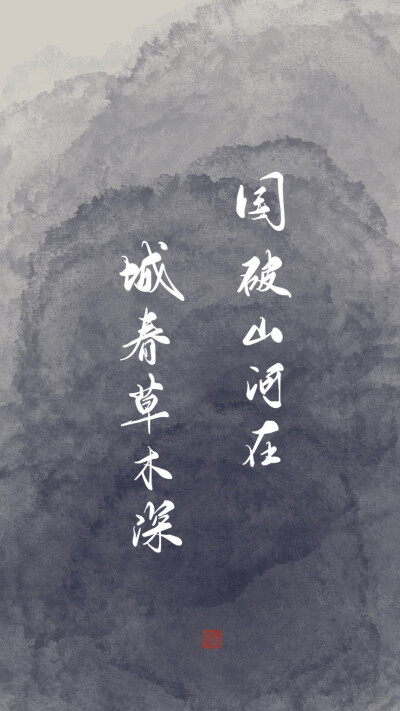 国破山河在
城春草木深